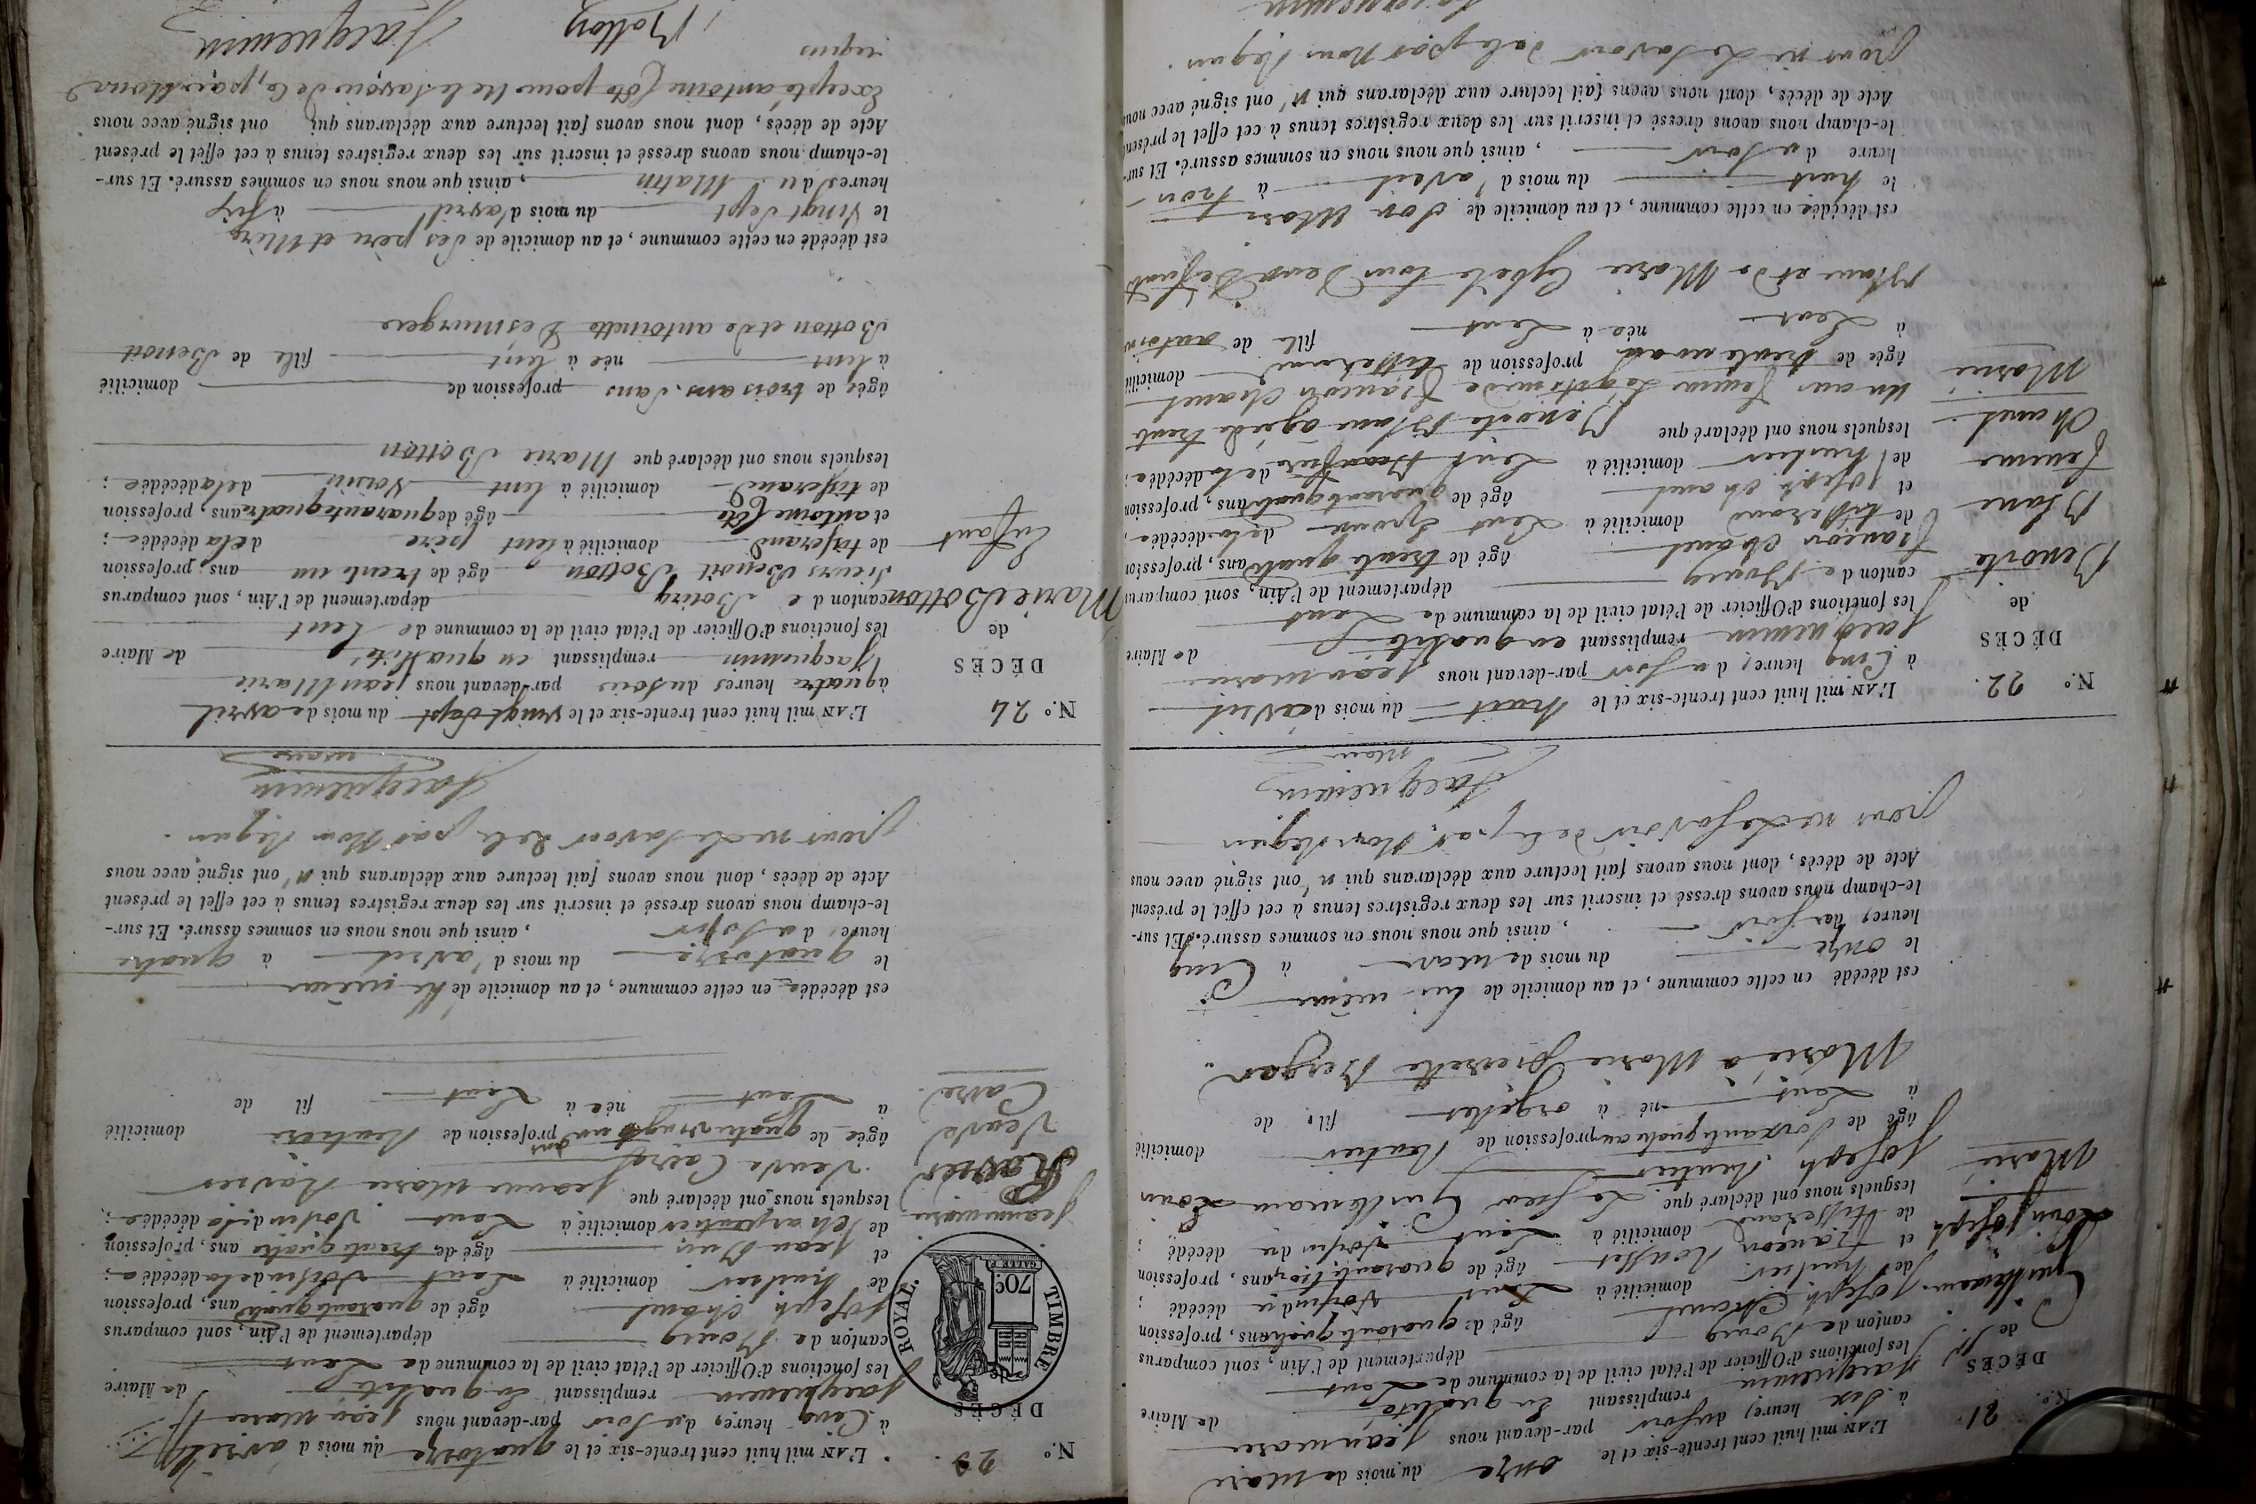 N.° 21.
DÉCÈS
de
Guillemaux
Louis joseph
Marié
L'AN mil huit cent trente-six et le onze du mois de Mars
à Six heures du soir par-devant nous jean marie
jacquemin remplissant en qualité de Maire
les fonctions d'Officier de l'état civil de la commune de Lent
canton de Bourg département de l'Ain, sont comparus
joseph Chanel âgé de quarante quatre ans, profession
de huilier domicilié à Lent Voisin du décédé ;
et françois Rousset âgé de quarante trois ans, profession
de tisserand domicilié à Lent Voisin du décédé ;
lesquels nous ont déclaré que Le sieur Louis
joseph Rentier
âgé de Soixante quatre ans profession de Rentier domicilié
à Lent né à orgelet fils de
Marié à Marie pierrette
est décédé en cette commune, et au domicile de lui même
le onze du mois de Mars à Cinq
heures du soir, ainsi que nous nous en sommes assuré. Et sur-
le-champ nous avons dressé et inscrit sur les deux registres tenus à cet effet le présent
Acte de décès, dont nous avons fait lecture aux déclarans qui n'ont signé avec nous
pour ne le savoir de ce par Nous Requis
Jacquemin
Maire
N.° 22.
DÉCÈS
de
Benoite
Blanc
femme
Chanel
Marie
L'AN mil huit cent trente-six et le huit du mois d'avril
à Cinq heures du soir par-devant nous jean marie
jacquemin remplissant en qualité de Maire
les fonctions d'Officier de l'état civil de la commune de Lent
canton de Bourg département de l'Ain, sont comparus
françois Chanel âgé de trente quatre ans, profession
de tisserand domicilié à Lent Epoux de la décédée ;
et joseph Chanel âgé de quarante quatre ans, profession
de huilier domicilié à Lent Beaufrère de la décédée ;
lesquels nous ont déclaré que Benoite Blanc agée de trente
un ans femme Légitime de françois Chanel
âgée de trente un ans profession de tisserand domicilié
à Lent née à Lent fille de antoine
Blanc et de Marie tous Deux Défunts
est décédée en cette commune, et au domicile de Son Mari
le huit du mois d'avril à trois
heure du soir, ainsi que nous nous en sommes assuré. Et sur-
le-champ nous avons dressé et inscrit sur les deux registres tenus à cet effet le présent
Acte de décès, dont nous avons fait lecture aux déclarans qui n'ont signé avec nous
pour ne le savoir de ce par Nous Requis.
Jacquemin
N.° 23
DÉCÈS
TIMBRE ROYAL.
70c.
Jeanne marie
Ravier
Veuve
L'AN mil huit cent trente-six et le quatorze du mois d'avril
à Cinq heures du soir par-devant nous jean Marie
jacquemin remplissant en qualité de Maire
les fonctions d'Officier de l'état civil de la commune de Lent
canton de Bourg département de l'Ain, sont comparus
joseph Chanel âgé de quarante quatre ans, profession
de huilier domicilié à Lent Voisin de la décédée ;
et jean âgé de trente quatre ans, profession
de Charpentier domicilié à Lent Voisin de la décédée ;
lesquels nous ont déclaré que jeanne Marie Ravier
Veuve
âgée de quatre vingt un ans profession de Rentière domicilié
à Lent née à Lent fil de
est décédée en cette commune, et au domicile de Elle même
le quatorze du mois d'avril à quatre
heure du soir, ainsi que nous nous en sommes assuré. Et sur-
le-champ nous avons dressé et inscrit sur les deux registres tenus à cet effet le présent
Acte de décès, dont nous avons fait lecture aux déclarans qui n'ont signé avec nous
pour ne le savoir de ce par Nous Requis.
Jacquemin
maire
N.° 24
DÉCÈS
de
Marie Botton
Enfant
L'AN mil huit cent trente-six et le vingt Sept du mois de avril
à quatre heures du soir par-devant nous jean Marie
Jacquemin remplissant en qualité de Maire
les fonctions d'Officier de l'état civil de la commune de Lent
canton de Bourg département de l'Ain, sont comparus
Sieurs Benoit Botton âgé de trente un ans, profession
de tisserand domicilié à lent père de la décédée ;
et antoine âgé de quarante quatre ans, profession
de tisserand domicilié à lent Voisin de la décédée ;
lesquels nous ont déclaré que Marie Botton
âgée de trois ans. Sans profession de domicilié
à lent née à lent fille de Benoit
Botton et de antoinette Desmurger
est décédé en cette commune, et au domicile de Ses père et Mère
le vingt Sept du mois d'avril à Six
heures du Matin, ainsi que nous nous en sommes assuré. Et sur-
le-champ nous avons dressé et inscrit sur les deux registres tenus à cet effet le présent
Acte de décès, dont nous avons fait lecture aux déclarans qui ont signé avec nous
Excepté antoine pour Ne le Savoir de Ce, par Nous
requis
Botton Jacquemin